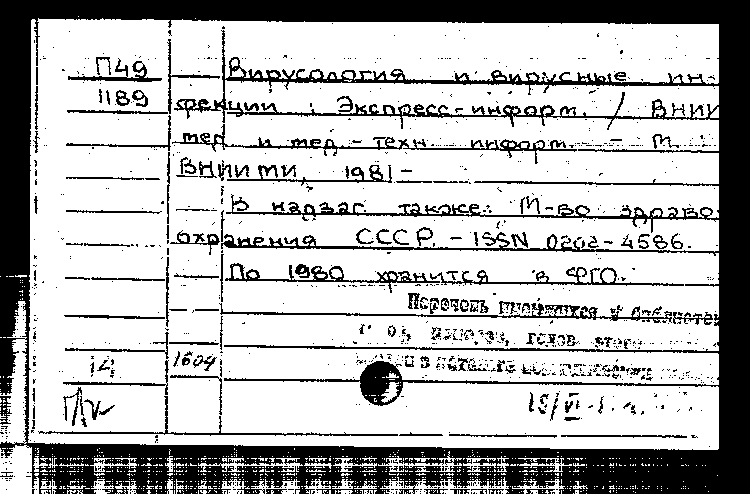 П49
1189
Вирусология и вирусные ин-
фекции : Экспресс-информ. / ВНИИ
мед. и мед.-техн. информ. - М. :
ВНИИМИ, 1981 -
В надзаг. также: М-во здраво-
охранения СССР. - ISSN 0202-4586.
По 1980 хранится в ФГО.
Перечень имеющихся в библиотеке
годов этого
14 1604